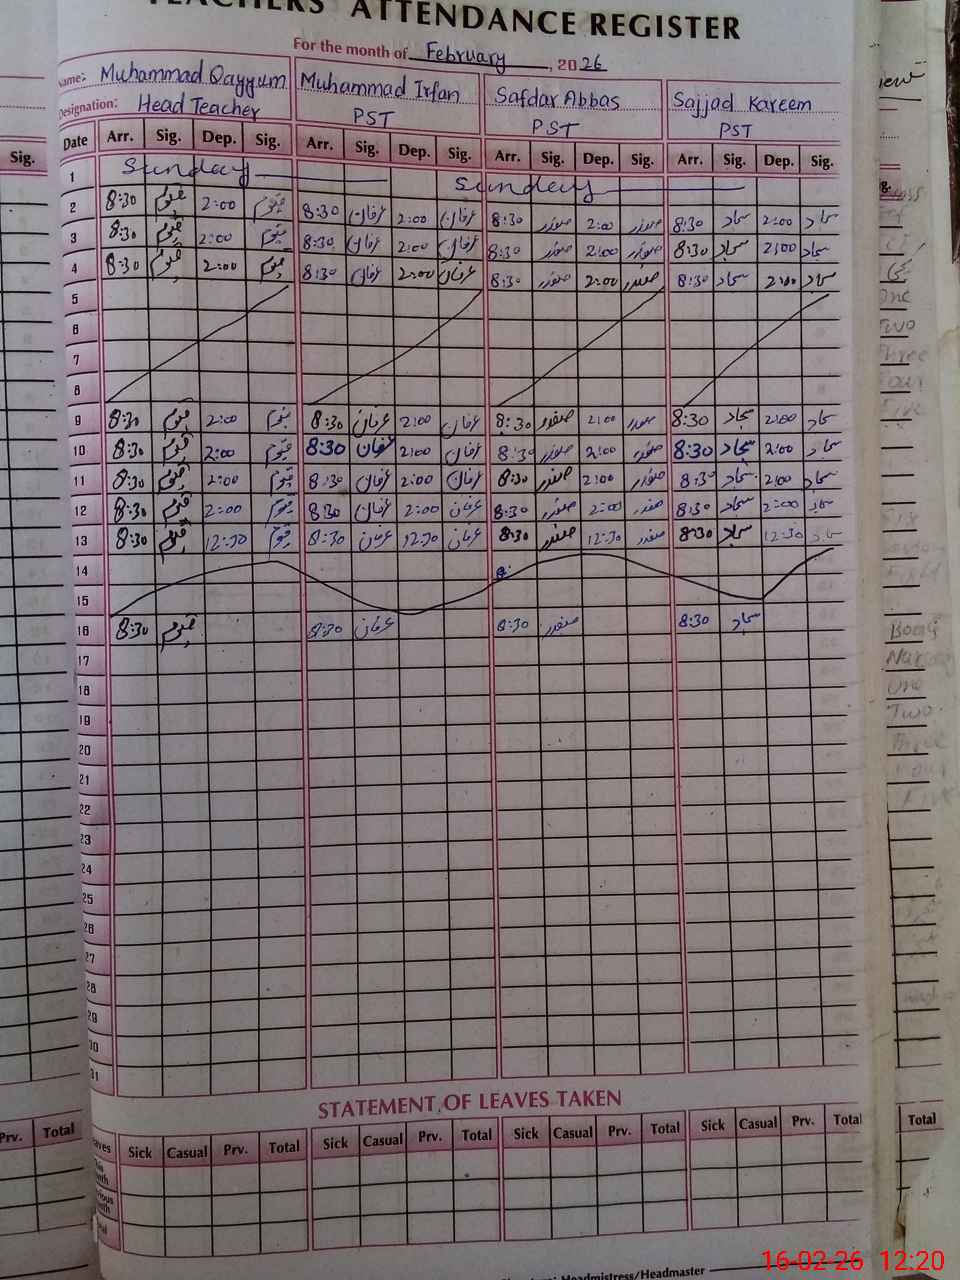 TEACHERS' ATTENDANCE REGISTER
For the month of February, 2026
Name: Muhammad Qayyum Muhammad Irfan Safdar Abbas Sajjad Kareem
Designation: Head Teacher PST PST PST
Date Arr. Sig. Dep. Sig. Arr. Sig. Dep. Sig. Arr. Sig. Dep. Sig. Arr. Sig. Dep. Sig.
1 Sunday Sunday
2 8:30 قیوم 2:00 قیوم 8:30 عرفان 2:00 عرفان 8:30 صفدر 2:00 صفدر 8:30 سجاد 2:00 سجاد
3 8:30 قیوم 2:00 قیوم 8:30 عرفان 2:00 عرفان 8:30 صفدر 2:00 صفدر 8:30 سجاد 2:00 سجاد
4 8:30 قیوم 2:00 قیوم 8:30 عرفان 2:00 عرفان 8:30 صفدر 2:00 صفدر 8:30 سجاد 2:00 سجاد
5
6
7
8
9 8:30 قیوم 2:00 قیوم 8:30 عرفان 2:00 عرفان 8:30 صفدر 2:00 صفدر 8:30 سجاد 2:00 سجاد
10 8:30 قیوم 2:00 قیوم 8:30 عرفان 2:00 عرفان 8:30 صفدر 2:00 صفدر 8:30 سجاد 2:00 سجاد
11 8:30 قیوم 2:00 قیوم 8:30 عرفان 2:00 عرفان 8:30 صفدر 2:00 صفدر 8:30 سجاد 2:00 سجاد
12 8:30 قیوم 2:00 قیوم 8:30 عرفان 2:00 عرفان 8:30 صفدر 2:00 صفدر 8:30 سجاد 2:00 سجاد
13 8:30 قیوم 12:30 قیوم 8:30 عرفان 12:30 عرفان 8:30 صفدر 12:30 صفدر 8:30 سجاد 12:30 سجاد
14 8:
15
16 8:30 قیوم 8:30 عرفان 8:30 صفدر 8:30 سجاد
17
18
19
20
21
22
23
24
25
26
27
28
29
30
31
STATEMENT OF LEAVES TAKEN
Sick Casual Prv. Total Sick Casual Prv. Total Sick Casual Prv. Total Sick Casual Prv. Total
Headmistress/Headmaster
Sig.
Prv. Total
Total
One
Two
Three
Four
Five
One
Two
16-02-26 12:20